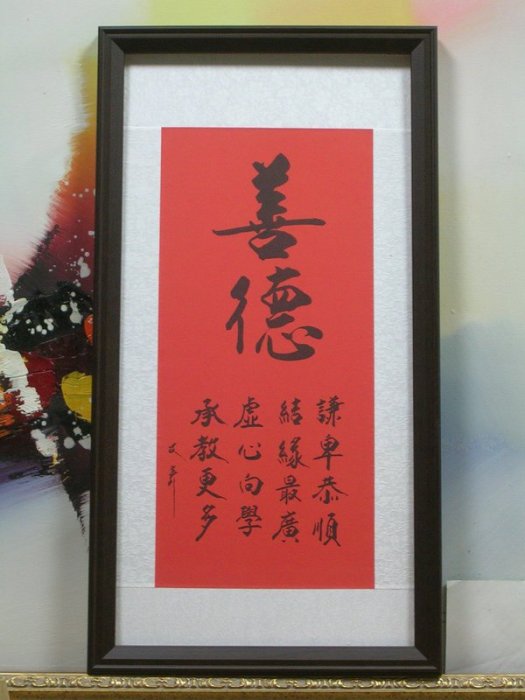 善德
謙卑恭順
結緣最廣
虛心向學
承教更多